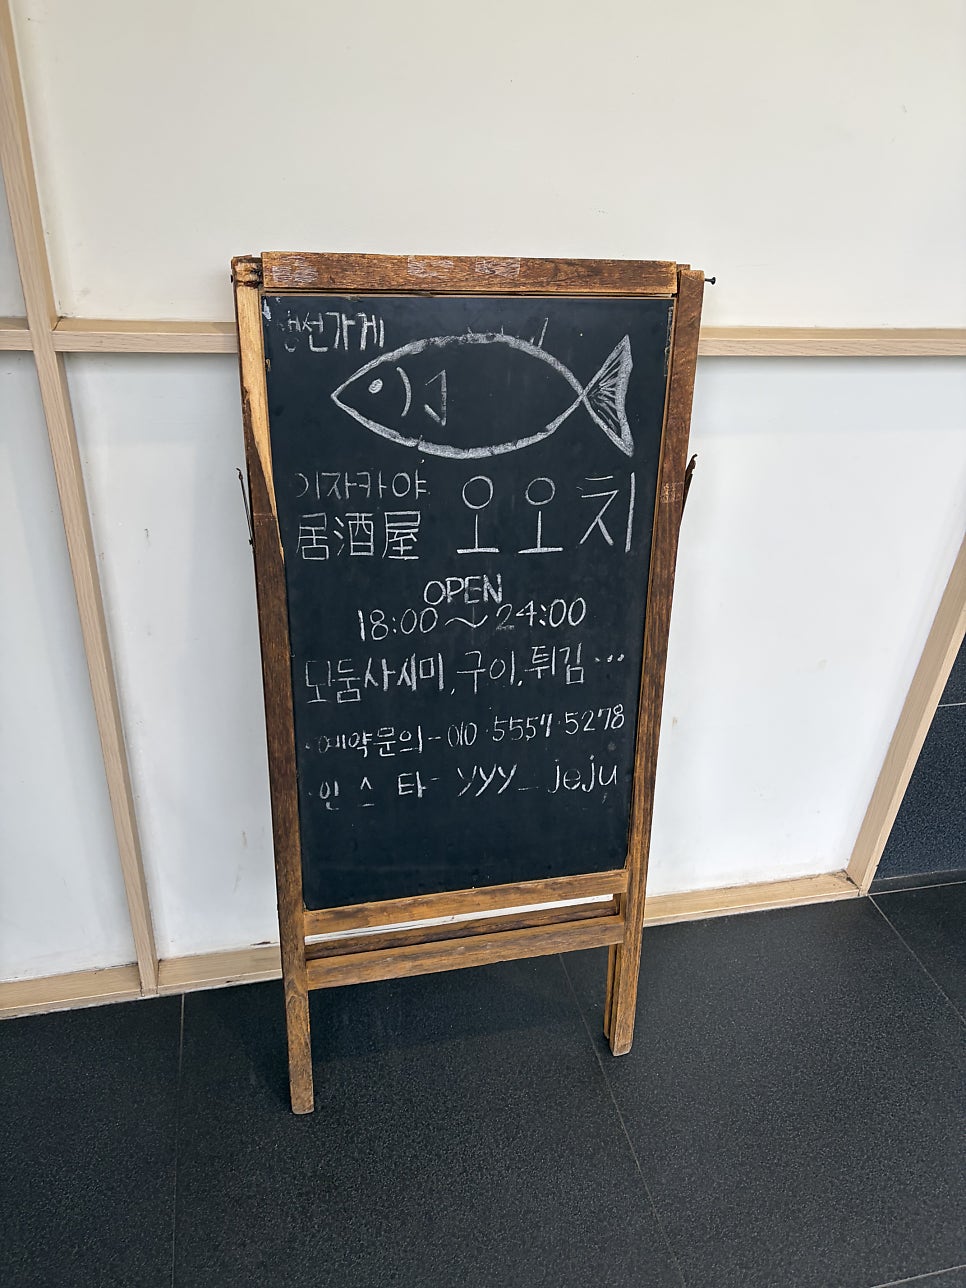 생선가게
이자카야
居酒屋 오오치
OPEN
18:00~24:00
모둠사시미, 구이, 튀김...
·예약문의-010·5557·5278
·인스타- yyy_jeju